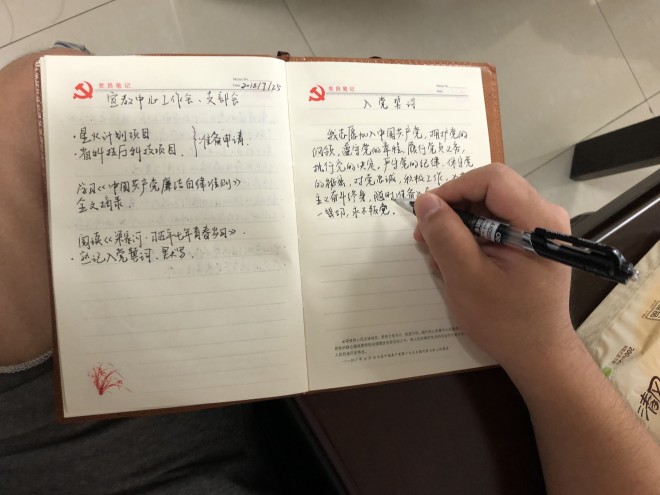 党员笔记
2018/7/25
宣教中心工作会、支部会
·星火计划项目
·省科技厅科技项目.
准备申请.
学习《中国共产党廉洁自律准则》
全文摘录.
阅读《梁家河.习近平七年青春岁月》.
·熟记入党誓词.默写.
党员笔记
入党誓词
我志愿加入中国共产党,拥护党的
纲领,遵守党的章程,履行党员义务,
执行党的决定,严守党的纪律,保守党
的秘密,对党忠诚,积极工作,
主义奋斗终身,随时准备
一切,永不叛党.